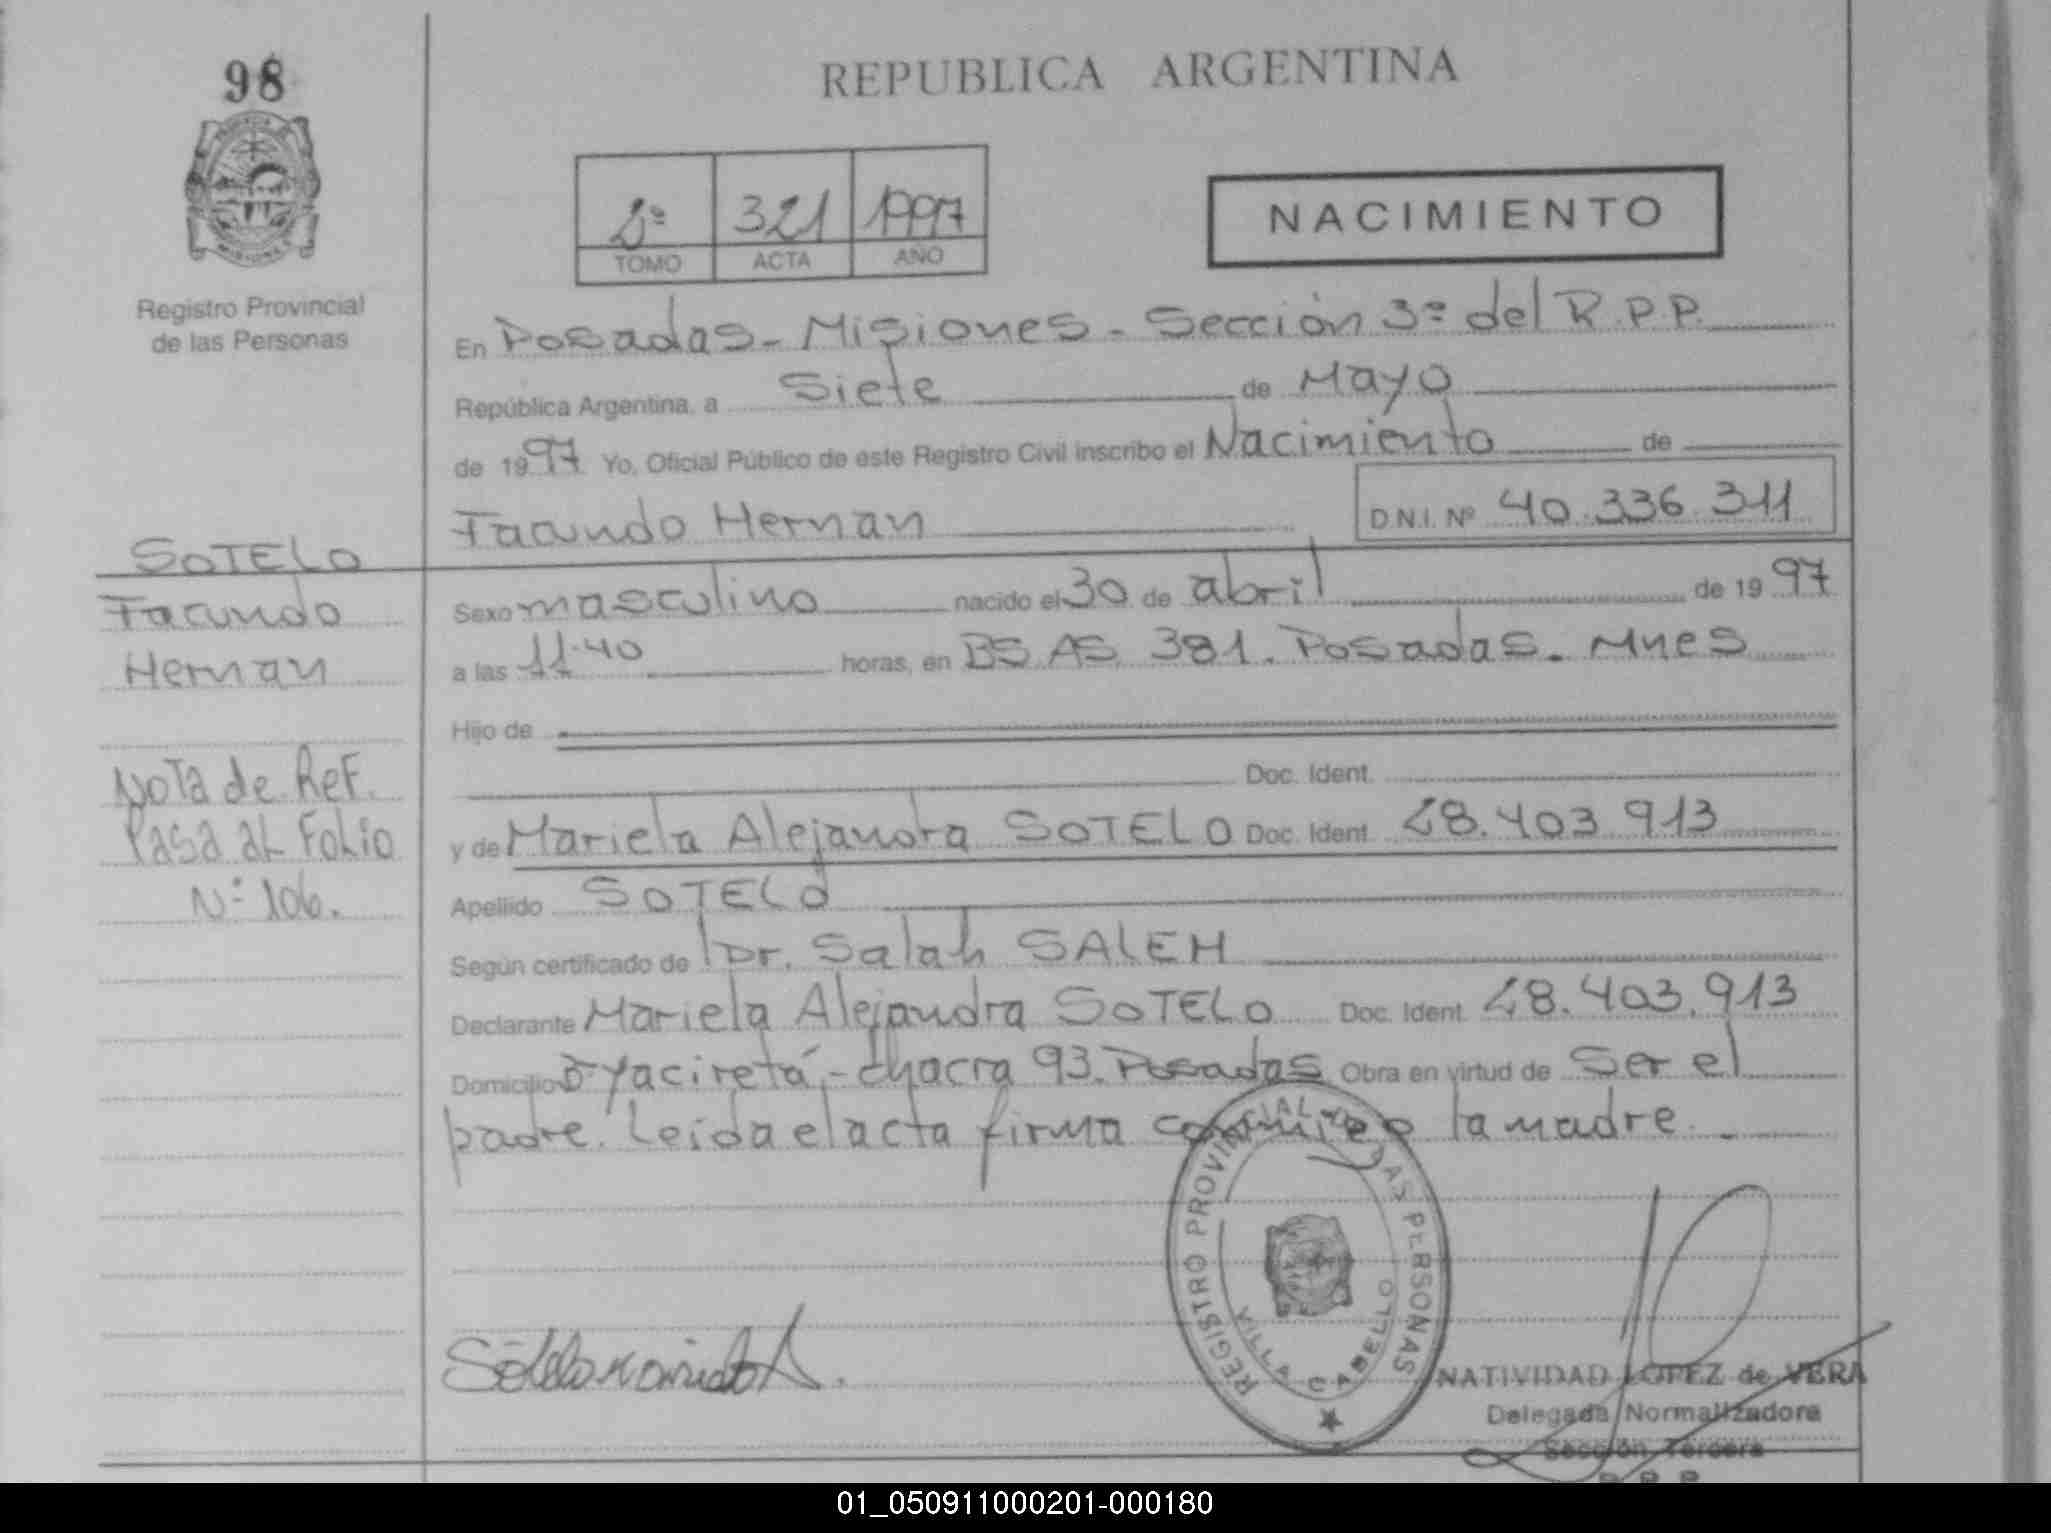 98
REPUBLICA ARGENTINA
2º 321 1997
TOMO ACTA AÑO
NACIMIENTO
Registro Provincial
de las Personas
En Posadas - Misiones - Sección 3º del R.P.P.
República Argentina, a Siete de Mayo
de 1997 Yo, Oficial Público de este Registro Civil inscribo el Nacimiento de
Facundo Hernan D.N.I. Nº 40.336.311
SOTELO
Facundo
Hernan
Nota de Ref.
Pasa al Folio
Nº 106.
Sexo masculino nacido el 30 de abril de 1997
a las 11.40 horas, en BS.AS. 381. Posadas. Mnes
Hijo de
Doc. Ident.
y de Mariela Alejandra SOTELO Doc. Ident. 28.403.913
Apellido SOTELO
Según certificado de Dr. Salah SALEH
Declarante Mariela Alejandra SOTELO Doc. Ident. 28.403.913
Domicilio Yaciretá - chacra 93. Posadas Obra en virtud de Ser el
padre. Leida el acta firma conmigo la madre.
REGISTRO PROVINCIAL DE LAS PERSONAS
VILLA CABELLO
NATIVIDAD LOPEZ de VERA
Delegada Normalizadora
Sección Tercera
R.P.P.
01_050911000201-000180